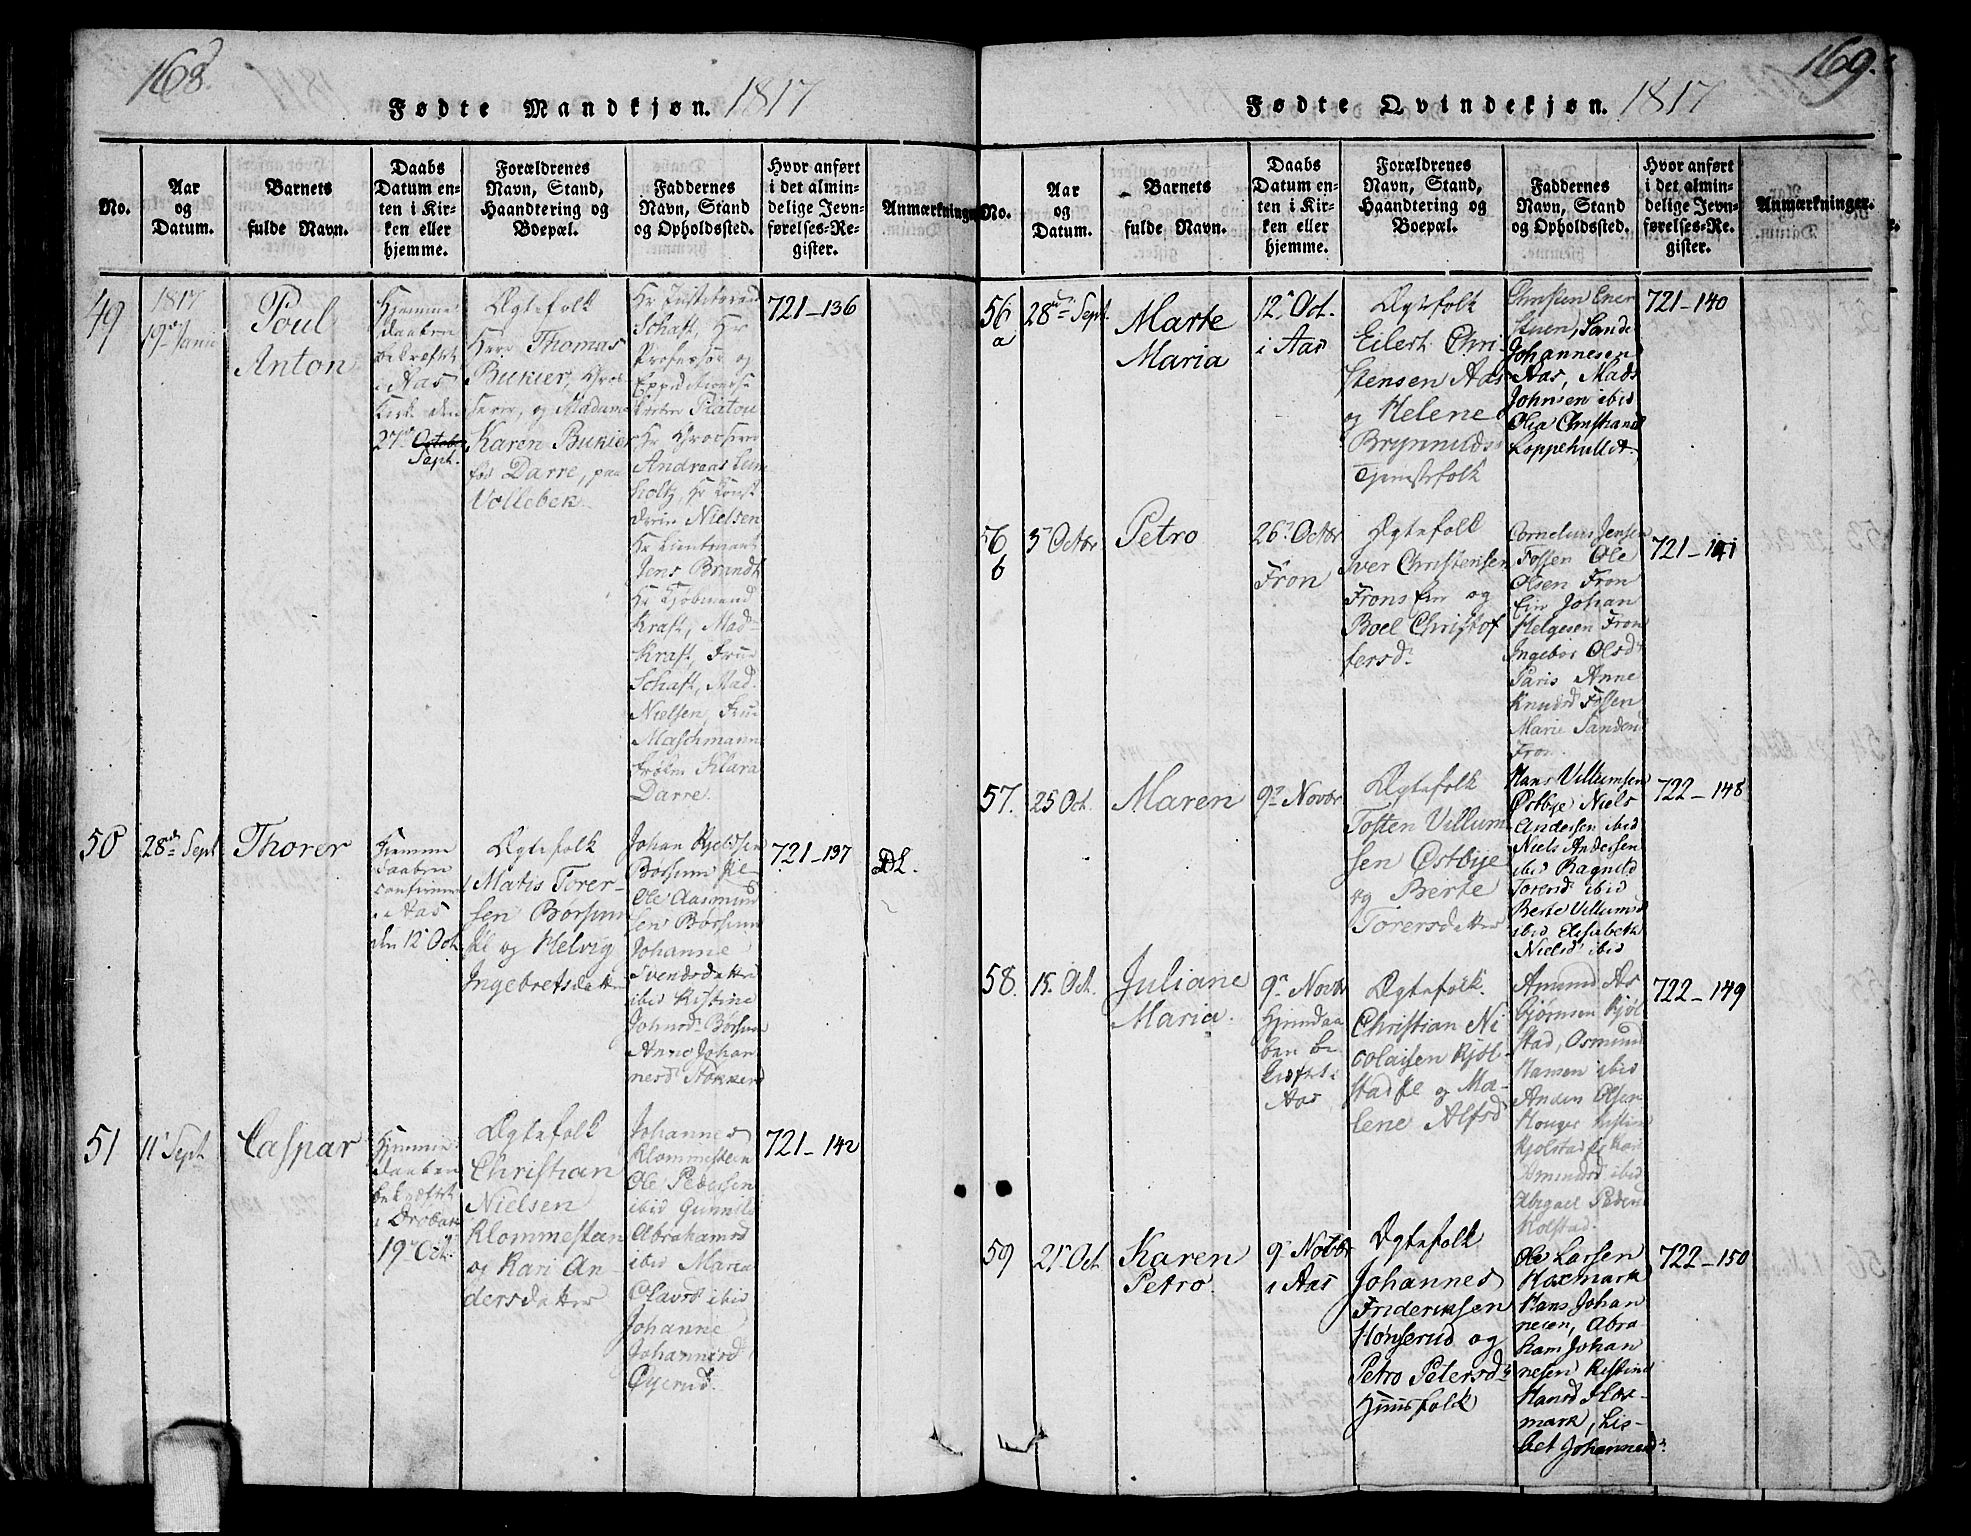 168.
Fødte Mandkjøn. 1817
No.
Aar
og
Datum.
Barnets
fulde Navn.
Daabs
Datum en-
ten i Kir-
ken eller
hjemme.
Forældrenes
Navn, Stand,
Haandtering og
Boepæl.
Faddernes
Navn, Stand
og Opholdssted.
Hvor anført
i det almin-
delige Jevn-
førelses-Re-
gister.
Anmærkninger
49
1817
19de Junii
Poul
Anton
Hjemme
daaben
bekræftet
i Aas
Kirke den
27de October
Sept.
Ægtefolk
Herr Thomas
Bukier, Gros-
serer, og Madame
Karen Bukier
fød Darre, paa
Vollebek
Hr Justitsraad
Schaft, Hr
Professor og
Expeditionsse
Platou
Hr Grosserer
Andreas Lum
holtz, Hr
Nielsen
Hr Lieutenant
Jens Brandt
Hr Kjøbmand
Kraft, Mad-
Kraft, Frue
Schaft, Mad.
Nielsen, Frue
Maschmann
Frøken Klara
Darre.
721_136
50
28de Sept
Thorer
Hjemme
daaben
confirmeret
i Aas
den 12 Oct.
Ægtefolk
Matis Torer-
sen Børsum
Ei og Helvig
Ingebretsdatter
Johan Kjeldsen
Børsum Eie
Ole Aasmund
sen Børsum
Johanne
Svendsdatter
ibid Kistine
Johnsd. Børsum
Anne Johan
nesd Stokker
721_137
DL.
51
11 Sept
Caspar
Hjemme
daaben
bekræftet
i Drøbak
19 Oct.
Ægtefolk
Christian
Nielsen
Klommesteen
og Kari An-
dersdatter
Johannes
Klommesteen
Ole Pedersen
ibid Gunnild
Abrahamsd
ibid Maria
Olavsd ibid
Johanne
Johannesd
Øyerud.
721_142
169.
Fødte Qvindekjøn. 1817
No.
Aar
og
Datum.
Barnets
fulde Navn.
Daabs
Datum en-
ten i Kir-
ken eller
hjemme.
Forældrenes
Navn, Stand,
Haandtering og
Boepæl.
Faddernes
Navn, Stand
og Opholdssted.
Hvor anført
i det almin-
delige Jevn-
førelses-Re-
gister.
Anmærkninger.
56
a
28de Sept.
Marte
Maria
12 Oct.
i Aas
Ægtefolk
Eilert Chri-
stensen Aas
og Helene
Brynnilds
Tjenestefolk
Christen Ener
Stuen,
Johannesen
Aas, Mads
Johnsen ibid
Olia Christiansd
Loppehullet.
721_140
56
b
3 Octbr
Petro
26 Octbr
Fron
Ægtefolk
Iver Christensen
Frons Eie og
Boel Christof
fersd.
Cornelius Jensen
Fossen Ole
Olsen Fron
Eie Johan
Helgesen Fron
Ingebor Olsd.
Paris Anne
Knudsd Fossen
Marie Sanden
Fron
721_141
57.
25 Oct.
Maren
9 Novbr
Ægtefolk
Tosten Villum
sen Østbye
og Berte
Torersdatter
Hans Villumsen
Østbye Niels
Andersen ibid
Niels Andersen
ibid Ragnild
Torersd ibid
Berte Villumsd
ibid Elisabeth
Nielsd ibid
722_148
58.
15. Oct.
Juliane
Maria.
9 Novbr
Hjemdaa
ben be
kræftet i
Aas
Ægtefolk.
Christian Ni
colaisen Kjøl-
stad Eie og Ma-
lene Alfsd
Amund As
bjørnsen Kjøl
stad, Osmund
Hansen ibid
Anden Olsen
Houger Kistine
Kjolstad Eie
Amundsd ibid
Abigael Pedersd
Kolstad.
722_149
59
21 Oct
Karen
Petro.
9 Novbr
i Aas
Ægtefolk
Johannes
Frideriksen
Hønserud og
Petro Petersd.
Huusfolk
Ole Larsen
Haxmark
Hans Johan
nesen, Abra-
ham Johan
nesen Kistine
Hansd Hax-
mark, Lis-
bet Johannesd.
722_150